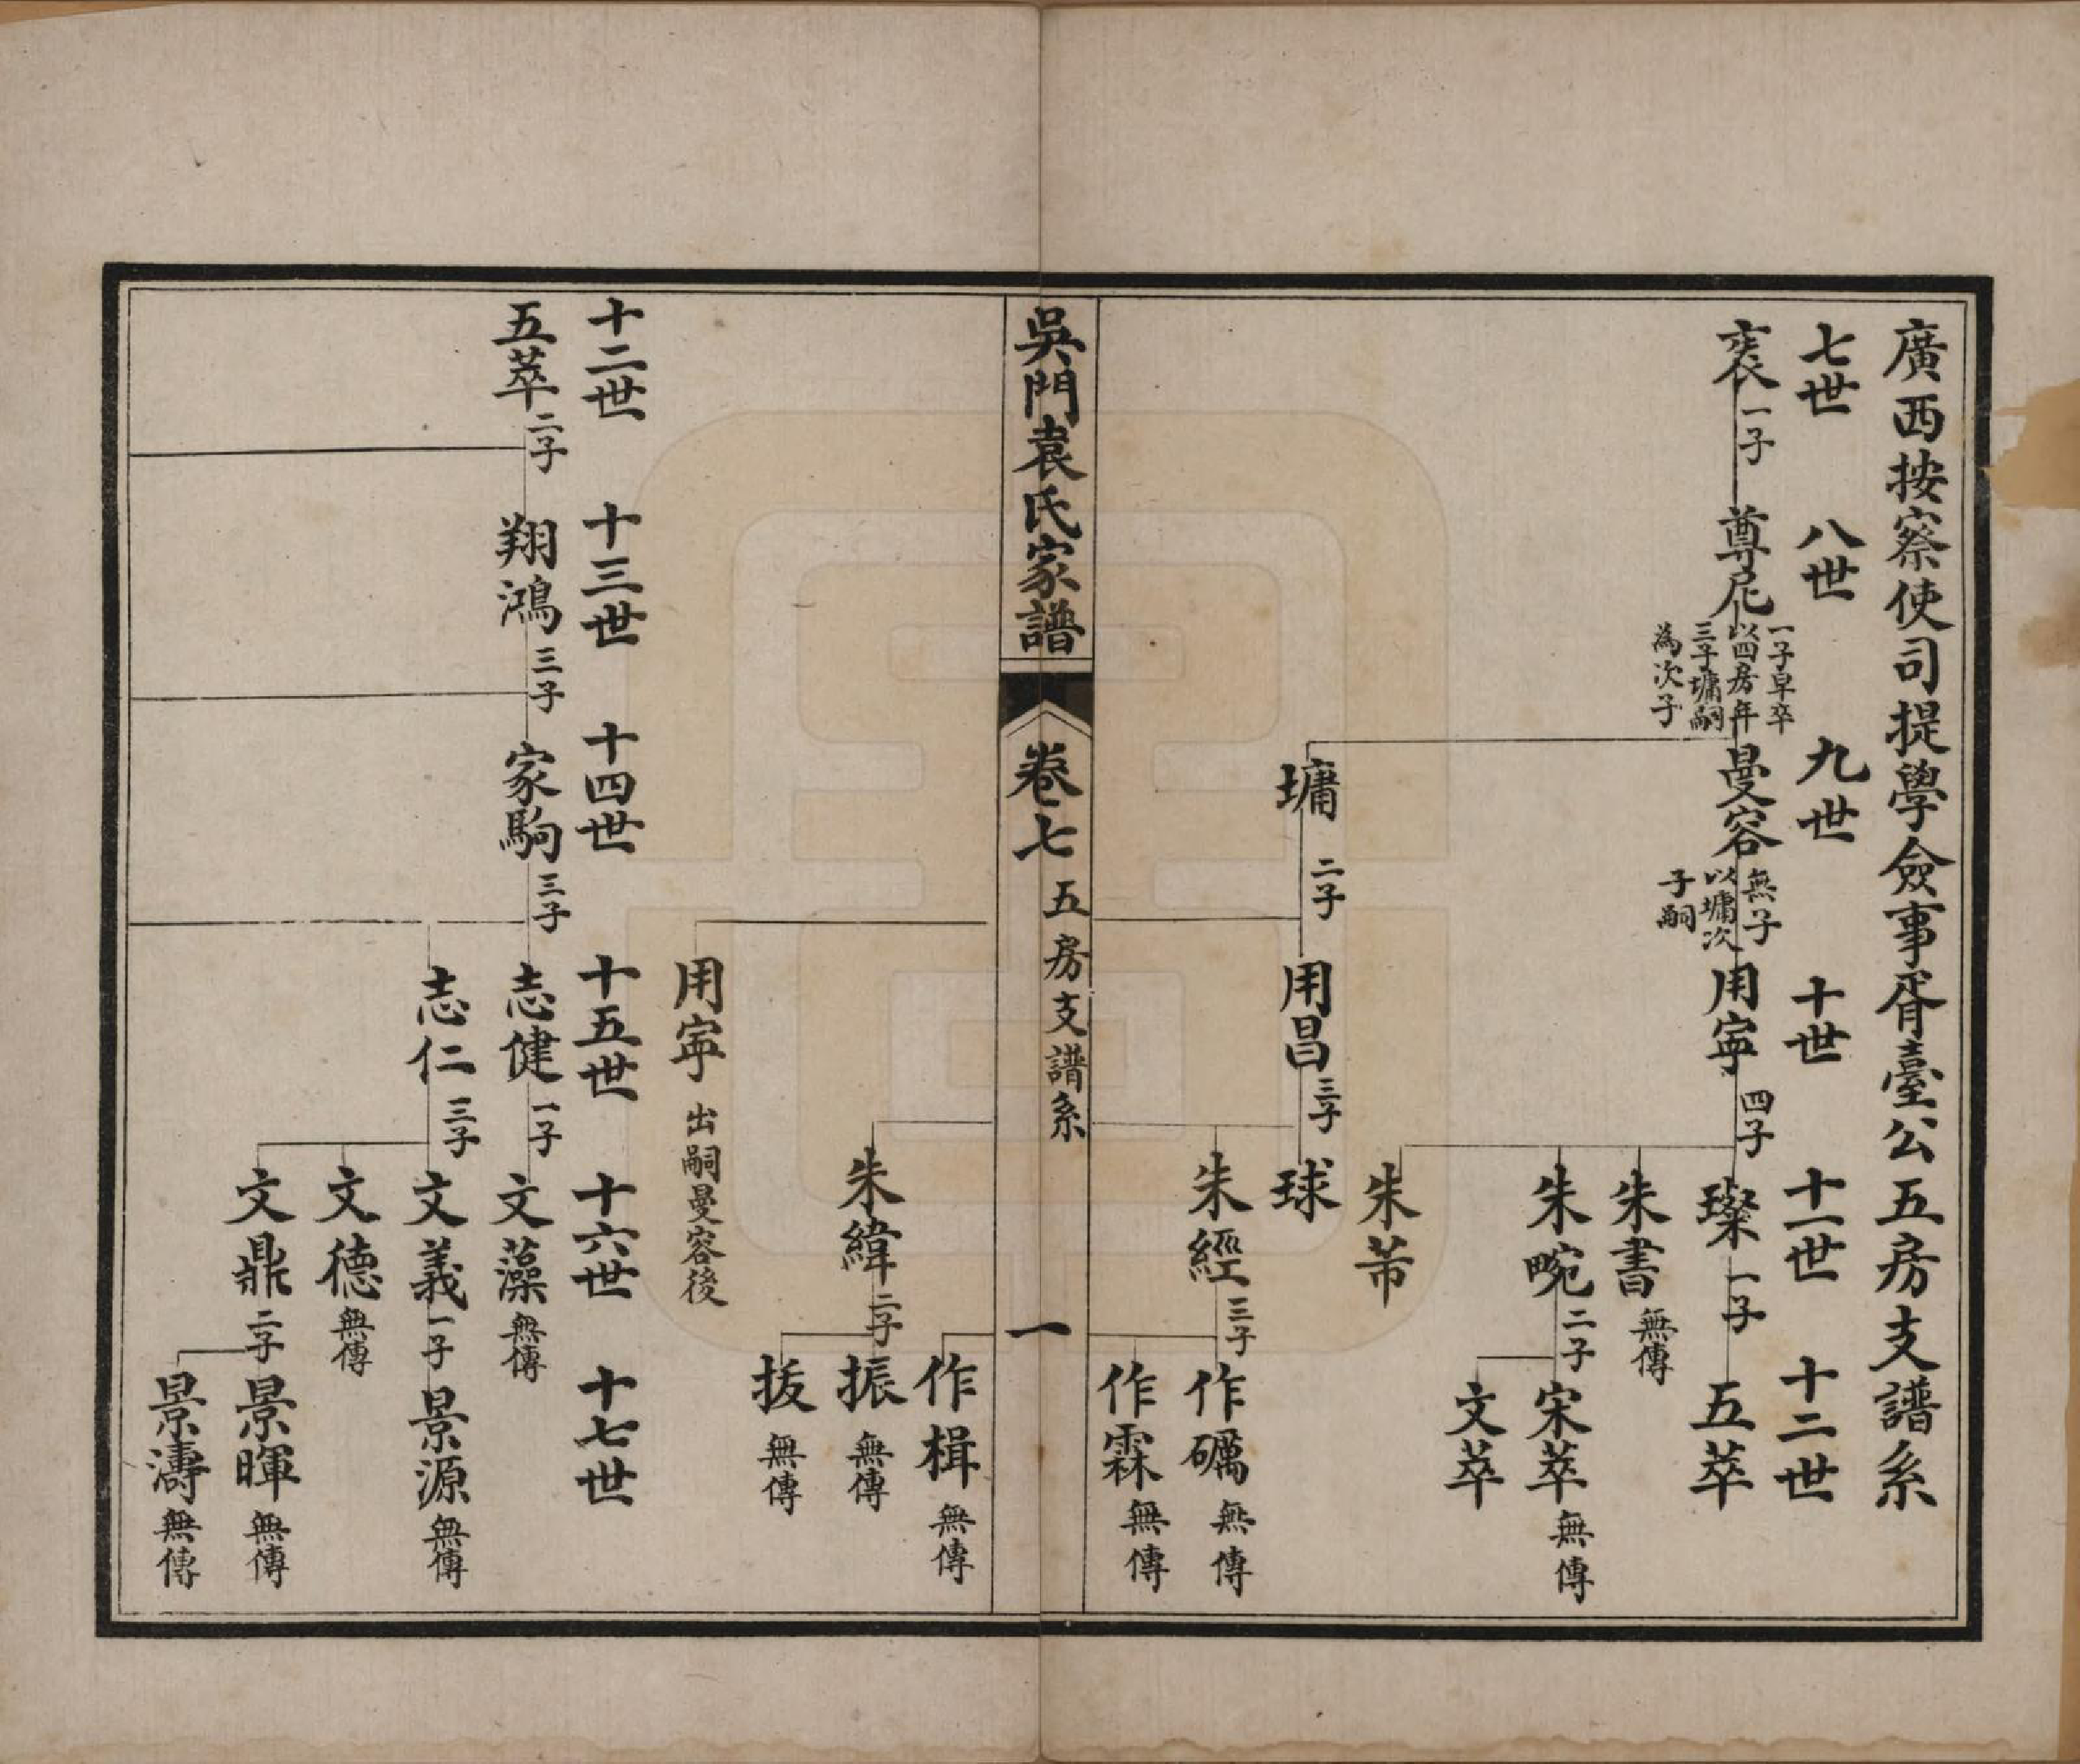 廣西按察使司提學僉事胥臺公五房支譜系
七世
八世
九世
十世
十一世
十二世
袠
一子
尊尼
一子早卒
以四房年
三子墉嗣
為次子
曼容
無子
以墉次
子嗣
用寧
四子
璨
一子
五萃
朱書
無傳
朱畹
二子
宋萃
無傳
文萃
朱芾
墉
二子
用昌
三子
球
朱經
三子
作礪
無傳
作霖
無傳
吳門袁氏家譜
卷七
五房支譜系
一
作楫
無傳
朱緯
二子
振
無傳
拔
無傳
用寧
出嗣曼容後
十二世
十三世
十四世
十五世
十六世
十七世
五萃
二子
翔鴻
三子
家駒
三子
志健
一子
文藻
無傳
志仁
三子
文義
一子
景源
無傳
文德
無傳
文鼎
二子
景暉
無傳
景濤
無傳